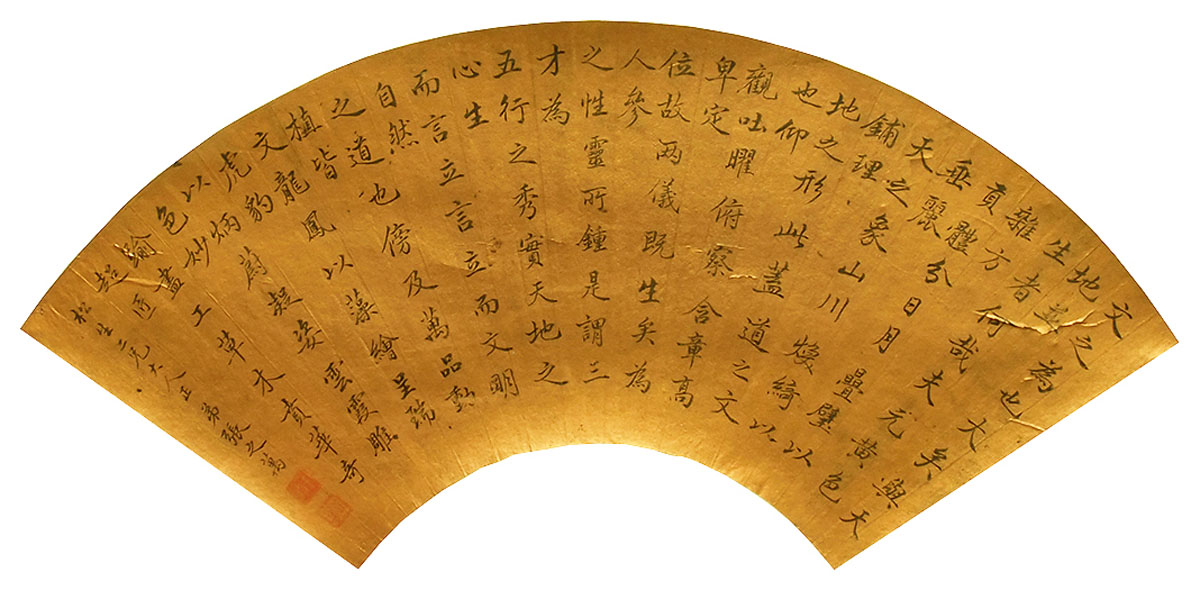 文之為也大矣與天
地並
生者何哉夫元黃色
雜方
員體分日月疊璧以
垂麗
天之象山川煥綺以
鋪理
地之形此蓋道之文
也仰
觀吐曜俯察含章高
卑定
位故两儀既生矣為
人參
之性靈所鍾是謂三
才為
五行之秀實天地之
心生
而言立言立而文明
自然
之道也傍及萬品動
植皆
文龍鳳以藻繪呈瑞
虎豹
以炳蔚凝姿雲霞雕
色妙
踰畫工草木賁華奇
超匠
松生二兄大人正弟張之萬